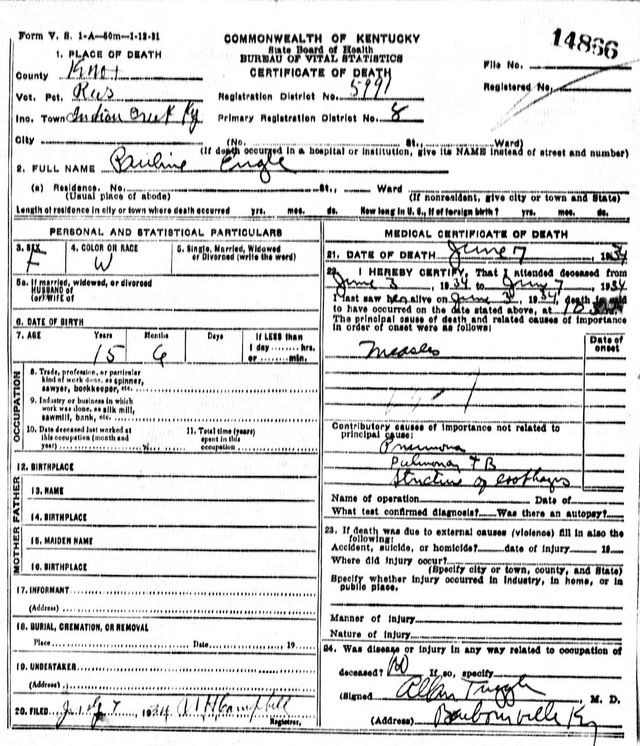 Form V. S. 1-A—50m—1-12-31
COMMONWEALTH OF KENTUCKY
State Board of Health
BUREAU OF VITAL STATISTICS
CERTIFICATE OF DEATH
14866
File No.
Registered No.
1. PLACE OF DEATH
County Knox
Vot. Pct.
Registration District No. 5991
Inc. Town Indian Creek Ky
Primary Registration District No. 8
City (No. St., Ward)
(If death occurred in a hospital or institution, give its NAME instead of street and number)
2. FULL NAME Pauline Engle
(a) Residence. No. St., Ward
(Usual place of abode) (If nonresident, give city or town and State)
Length of residence in city or town where death occurred yrs. mos. ds. How long in U. S., if of foreign birth? yrs. mos. ds.
PERSONAL AND STATISTICAL PARTICULARS
3. SEX 4. COLOR OR RACE 5. Single, Married, Widowed
or Divorced (write the word)
F W
5a. If married, widowed, or divorced
HUSBAND of
(or) WIFE of
6. DATE OF BIRTH
7. AGE Years Months Days If LESS than
1 day hrs.
or min.
15 6
OCCUPATION
8. Trade, profession, or particular
kind of work done, as spinner,
sawyer, bookkeeper, etc.
9. Industry or business in which
work was done, as silk mill,
sawmill, bank, etc.
10. Date deceased last worked at
this occupation (month and
year)
11. Total time (years)
spent in this
occupation
12. BIRTHPLACE
FATHER
13. NAME
14. BIRTHPLACE
MOTHER
15. MAIDEN NAME
16. BIRTHPLACE
17. INFORMANT
(Address)
18. BURIAL, CREMATION, OR REMOVAL
Place Date 19
19. UNDERTAKER
(Address)
20. FILED July 7, 1934 Campbell
Registrar.
MEDICAL CERTIFICATE OF DEATH
21. DATE OF DEATH June 7 1934
22. I HEREBY CERTIFY, That I attended deceased from
June 3, 1934 to June 7, 1934
I last saw her alive on June 3, 1934, death is said
to have occurred on the date stated above, at
The principal cause of death and related causes of importance
in order of onset were as follows:
Date of
onset
Measles
Contributory causes of importance not related to
principal cause:
Pneumonia
Pulmonary TB
Stricture of esophagus
Name of operation Date of
What test confirmed diagnosis? Was there an autopsy?
23. If death was due to external causes (violence) fill in also the
following:
Accident, suicide, or homicide? date of injury 19
Where did injury occur?
(Specify city or town, county, and State)
Specify whether injury occurred in industry, in home, or in
public place.
Manner of injury
Nature of injury
24. Was disease or injury in any way related to occupation of
deceased? No If so, specify
(Signed Allan Tuggle M. D.
(Address) Barbourville Ky